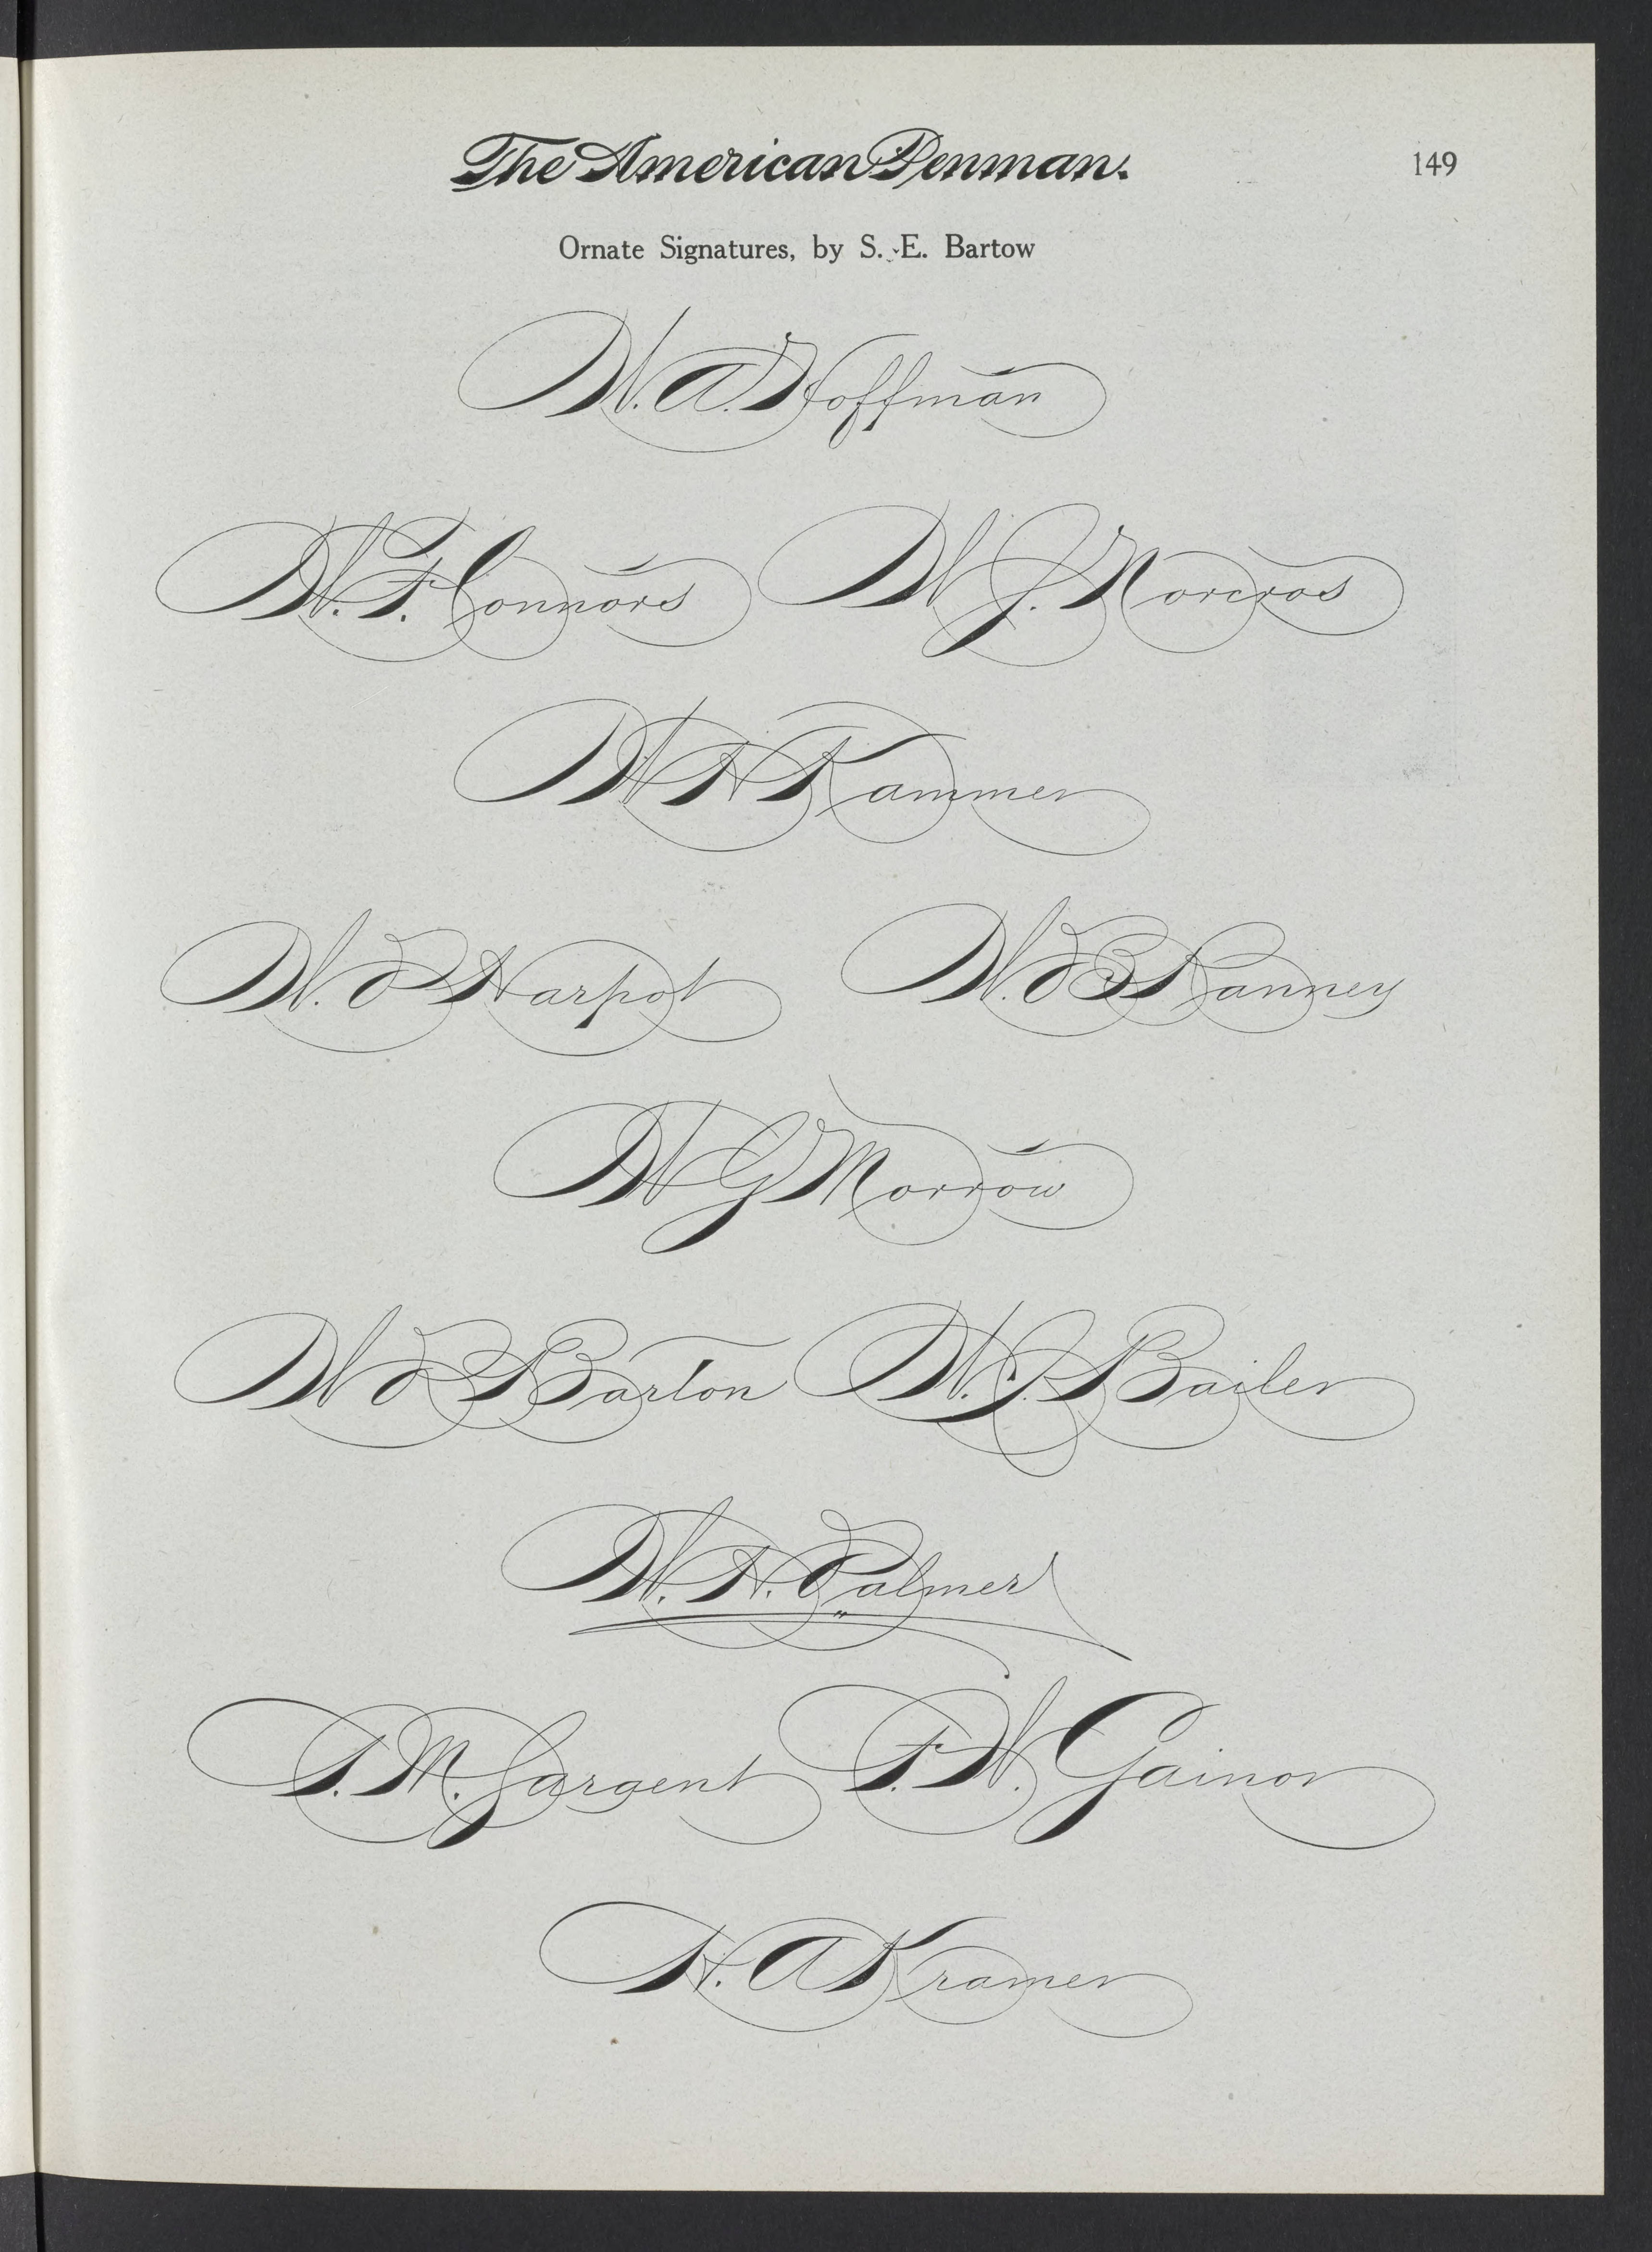 The American Penman.
149
Ornate Signatures, by S. E. Bartow
W. A. Hoffman
W. F. Connors W J. Norcros
W H Kammer
W. O Harpot W. O B Ranney
W G Morrow
W O Barton W. J. Bailer
W. H. Palmer
T. M. Sargent F. W. Gainor
H. A Kramer